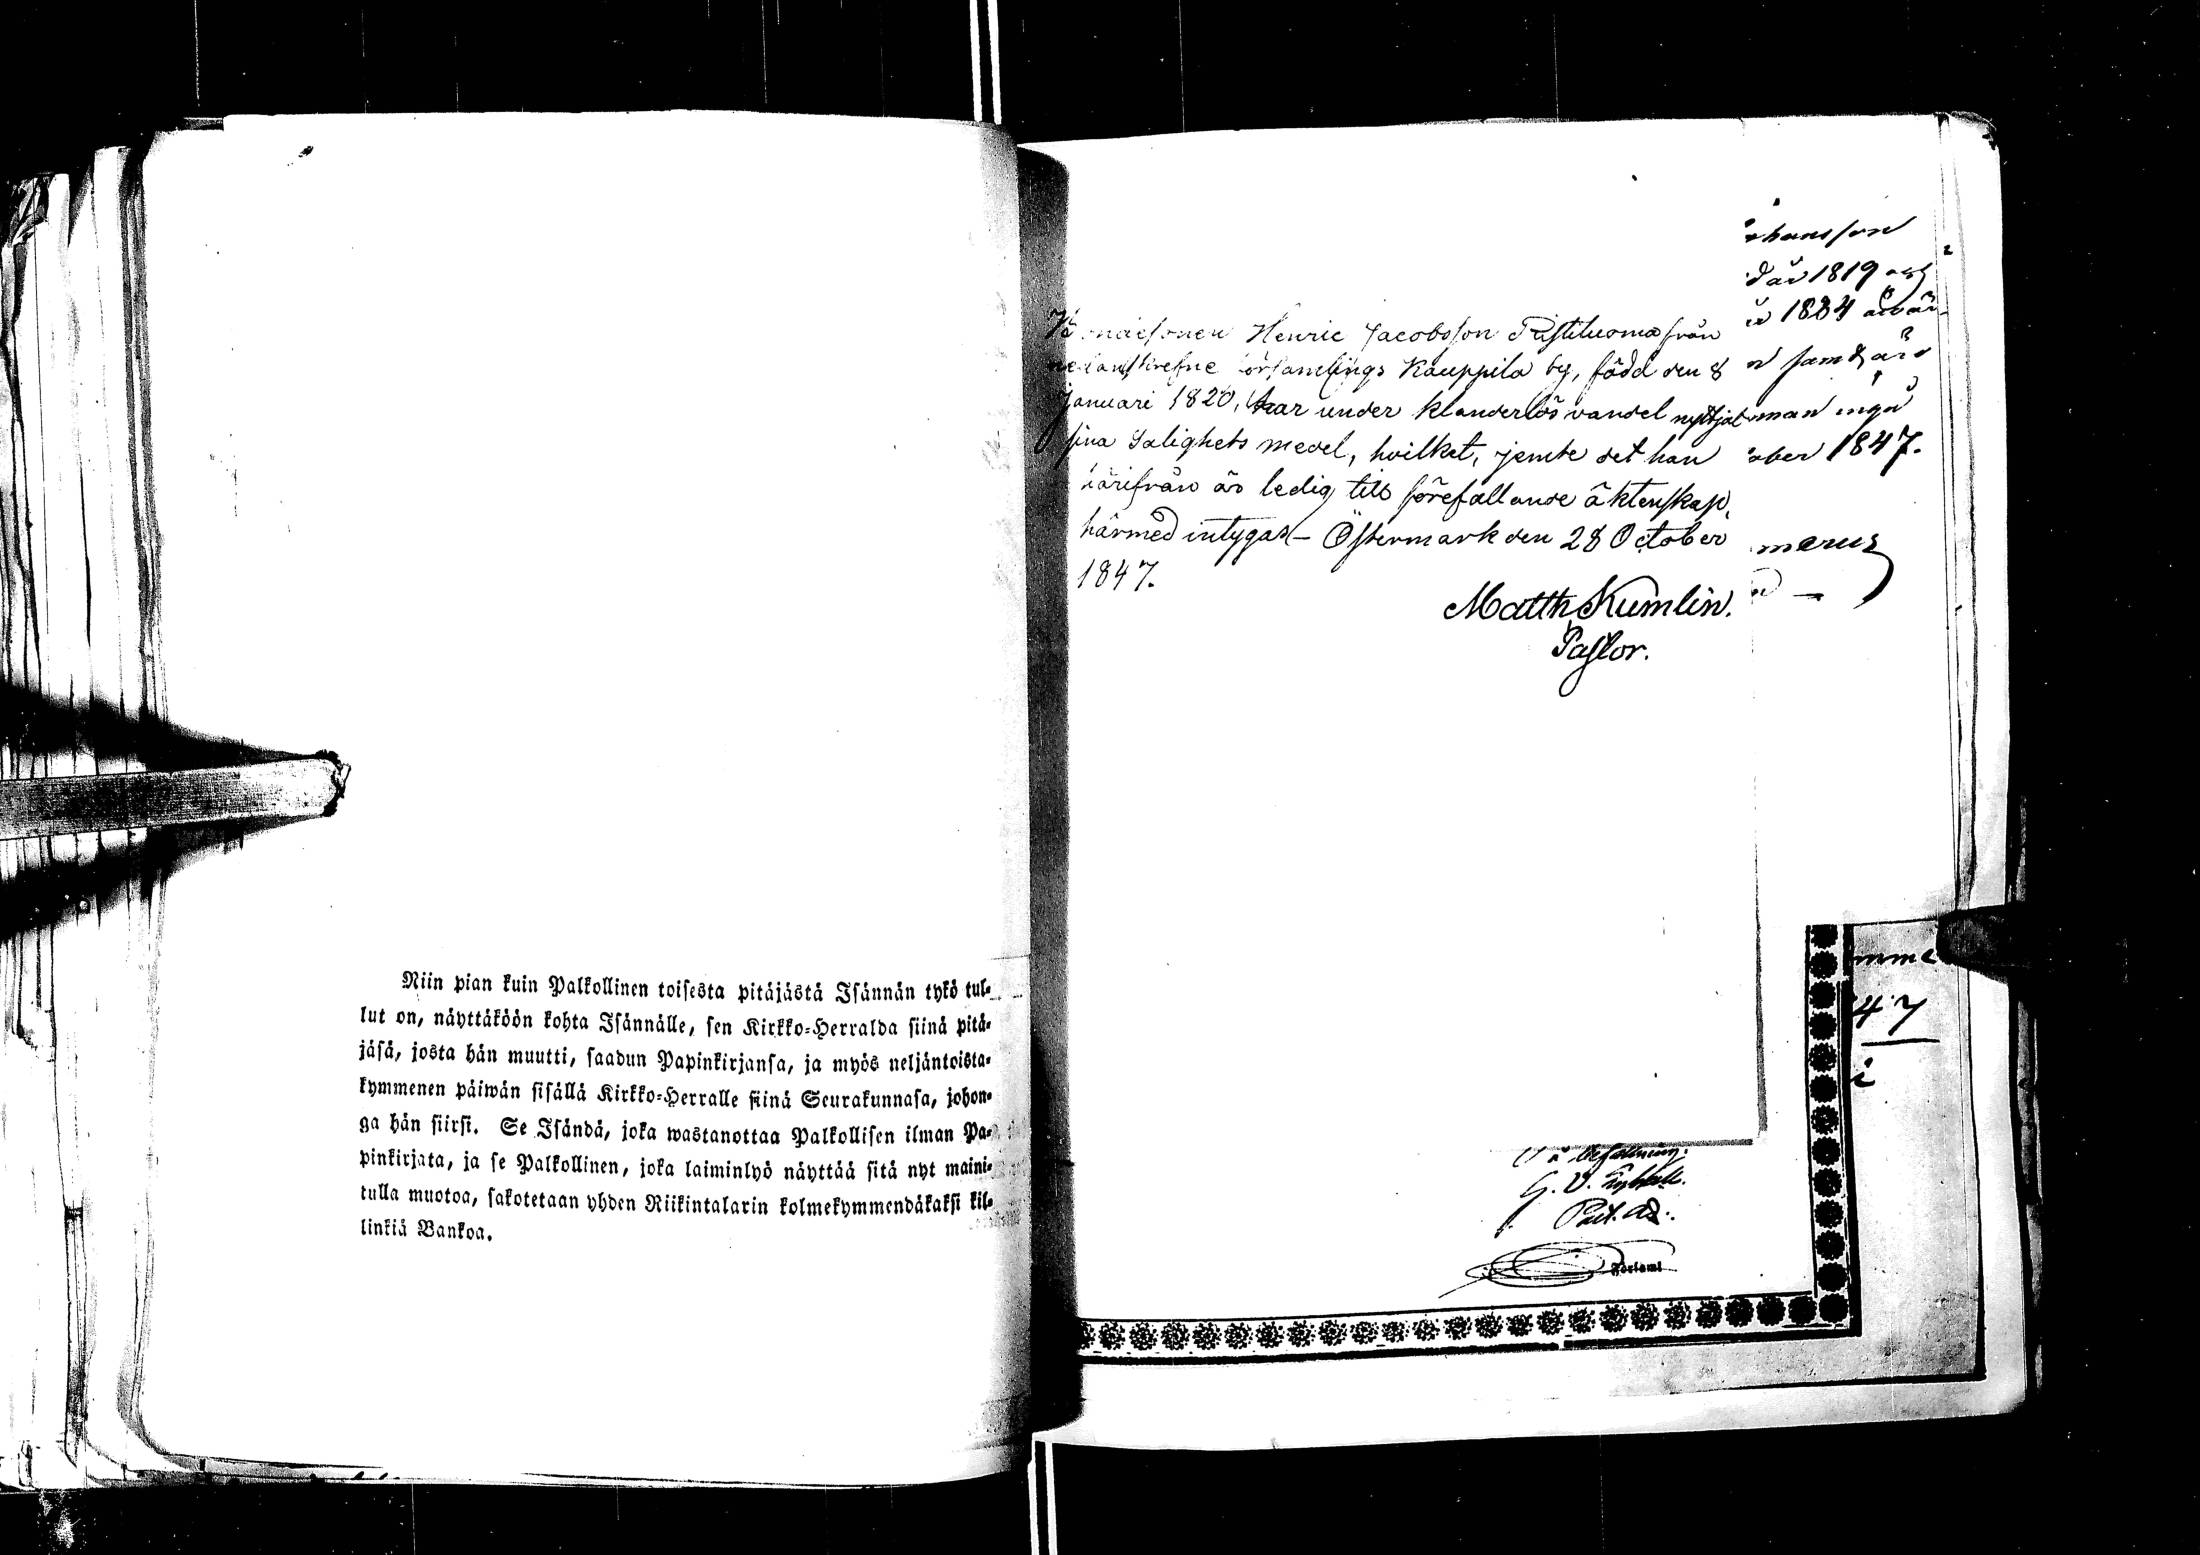 Niin pian kuin Palkollinen toisesta pitäjästä Isännän tykö tul-
lut on, näyttäköön kohta Isännälle, sen Kirkko-Herralda siinä pitä-
jäsä, josta hän muutti, saadun Papinkirjansa, ja myös neljäntoista-
kymmenen päiwän sisällä Kirkko-Herralle siinä Seurakunnasa, johon-
ga hän siirsi. Se Isändä, joka wastanottaa Palkollisen ilman Pa-
pinkirjata, ja se Palkollinen, joka laiminlyö näyttää sitä nyt maini-
tulla muotoa, sakotetaan yhden Riikintalarin kolmekymmendäkaksi kil-
linkiä Bankoa.
Henric Jacobsson Ristiluoma från
församlings Kauppila by, född den 8
Januari 1820, har under klanderlös vandel nyttjat
sina Salighets medel, hvilket, jemte det han
härifrån är ledig till förefallande äktenskap,
härmed intygas – Östermark den 28 October
1847.
Matth Kumlin.
Pastor.
hansson
d år 1819 och
1834
samt är
man
ober 1847.
merus
mme
47
befallning.
G. V.
Past. Adj.
Förlamt